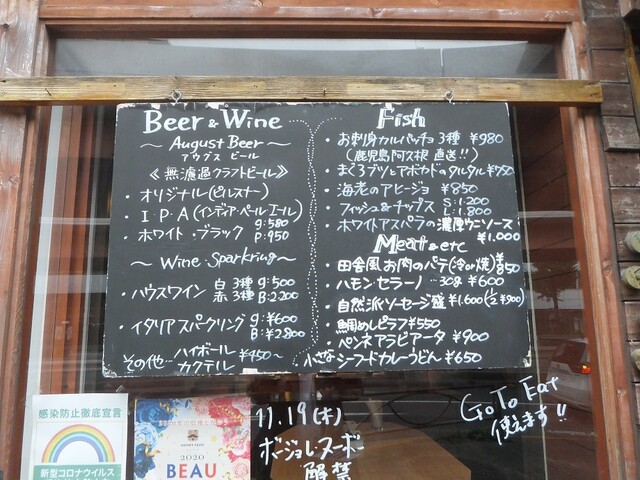 Beer & Wine
～ August Beer ～
アウグス ビール
《 無濾過クラフトビール 》
・オリジナル(ピルスナー)
・IPA(インディア・ペールエール)
・ホワイト・ブラック g:580
P:950
～ Wine・Sparkring ～
・ハウスワイン 白3種 g:500
赤3種 B:2200
・イタリアスパークリング g:¥600
B:¥2800
その他…ハイボール ¥450～
カクテル
Fish
・お刺身カルパッチョ3種 ¥980
(鹿児島阿久根 直送!!)
・まぐろブツとアボカドのタルタル ¥750
・海老のアヒージョ ¥850
・フィッシュ&チップス S:1.200
L:1.800
・ホワイトアスパラの濃厚ウニソース
¥1.000
Meat & etc
・田舎風お肉のパテ(冷or焼) ¥850
・ハモン・セラーノ …30g ¥600
・自然派ソーセージ盛 ¥1.600(½ ¥900)
・鯛めしピラフ ¥550
・ペンネアラビアータ ¥900
・小さなシーフードカレーうどん ¥650
感染防止徹底宣言
新型コロナウイルス
2020
BEAU
11.19(木)
ボージョレヌーボー
解禁
Go To Eat
使えます!!